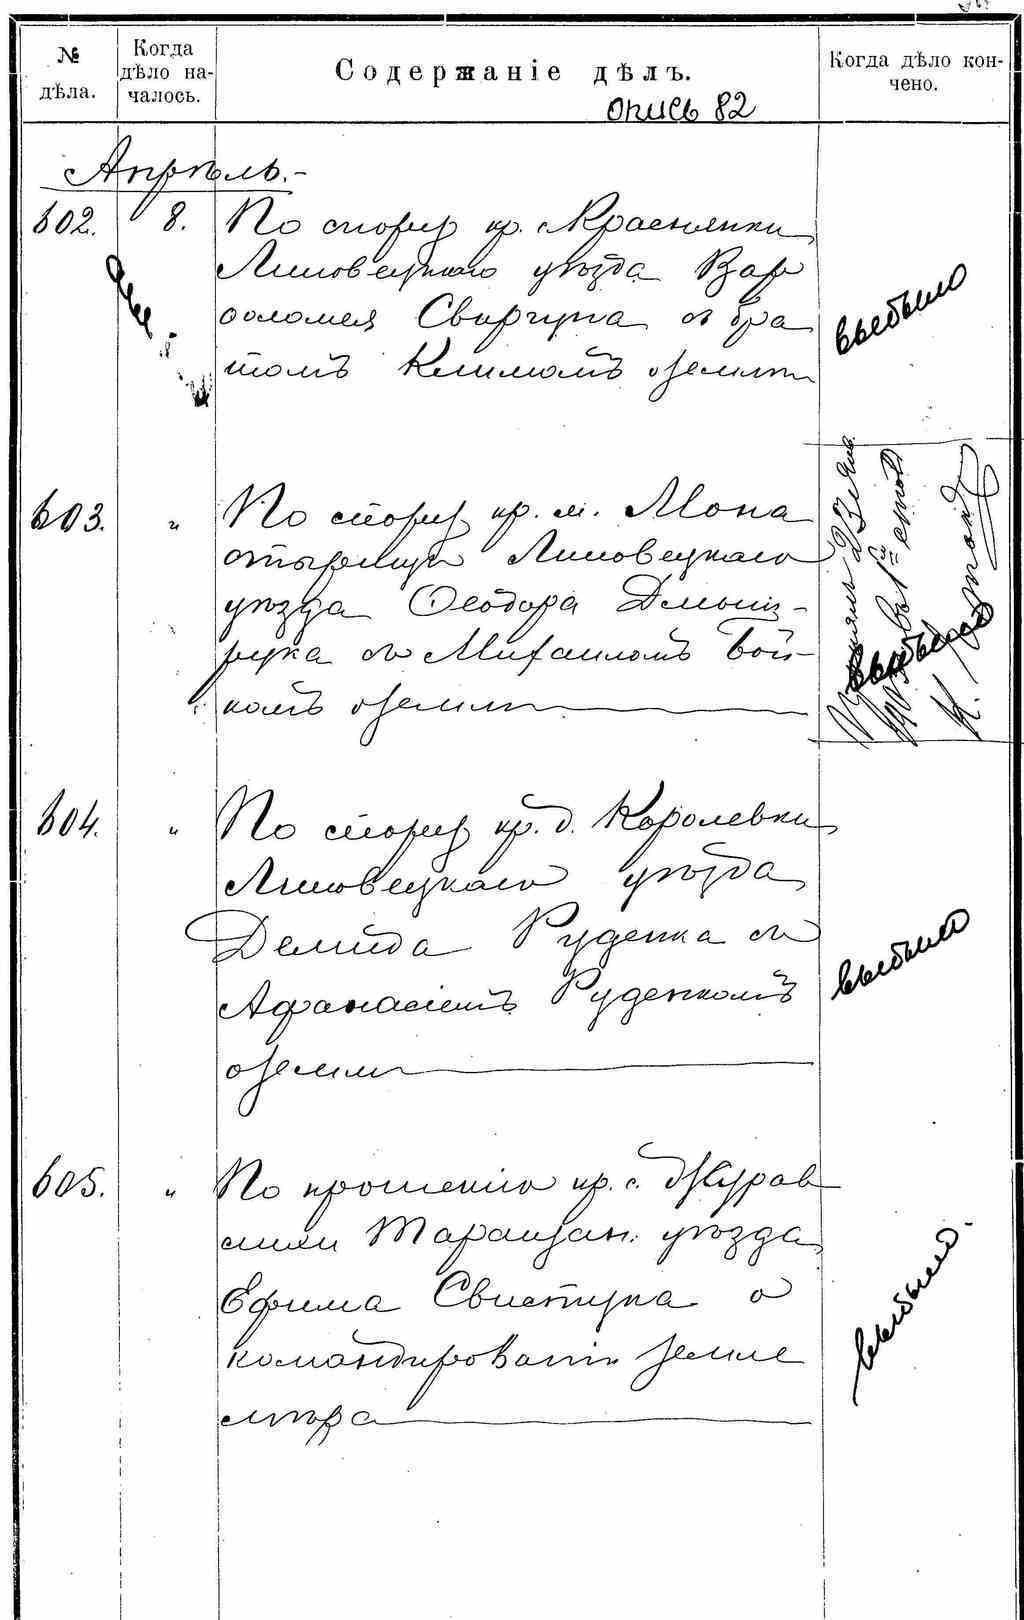 № дѣла.
Когда дѣло на-
чалось.
Содержаніе дѣлъ.
Когда дѣло кон-
чено.
опись 82
Апрѣль.-
602. 8. По спору кр. с. Краснянки
Липовецкаго уѣзда Вар
ѳоломея Свиргуна съ бра
томъ Климомъ о землѣ
выбыло
603. " По спору кр. м. Мона
стырища Липовецкаго
уѣзда Ѳеодора Дмыт-
рука съ Михаиломъ Бой-
комъ о землѣ
выбыло
604. " По спору кр. д. Королевки
Липовецкаго уѣзда
Демида Руденка съ
Афанасіемъ Руденкомъ
о землѣ
выбыло
605. " По прошенію кр. с. Журав
лихи Таращан. уѣзда
Ефима Свистука о
командированіи земле
мѣра
выбыло.